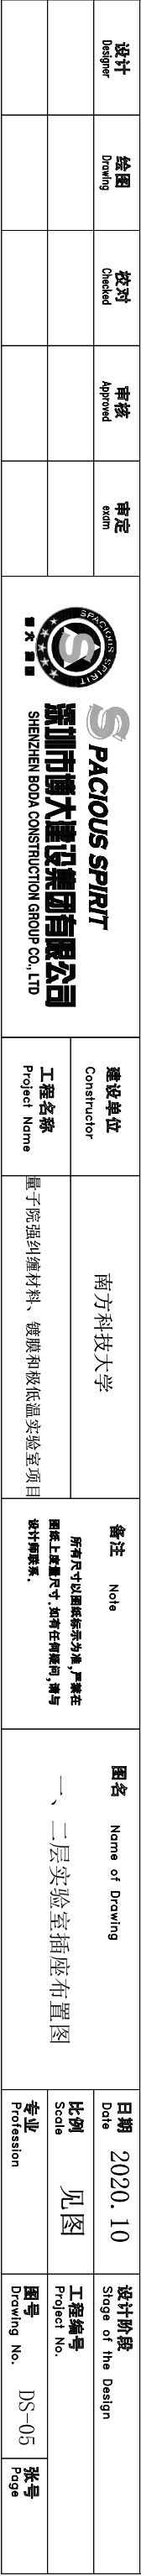 设计
Designer
绘图
Drawing
校对
Checked
审核
Approved
审定
exam
SPACIOUS SPIRIT
S
博大集团
SPACIOUS SPIRIT
深圳市博大建设集团有限公司
SHENZHEN BODA CONSTRUCTION GROUP CO., LTD
建设单位
Constructor
南方科技大学
工程名称
Project Name
量子院强纠缠材料、镀膜和极低温实验室项目
备注 Note
所有尺寸以图纸标示为准,严禁在
图纸上度量尺寸.如有任何疑问,请与
设计师联系.
图名 Name of Drawing
一、二层实验室插座布置图
日期 Date 2020.10
设计阶段
Stage of the Design
比例 Scale 见图
工程编号
Project No.
专业
Profession
图号
Drawing No. DS-05
张号
Page